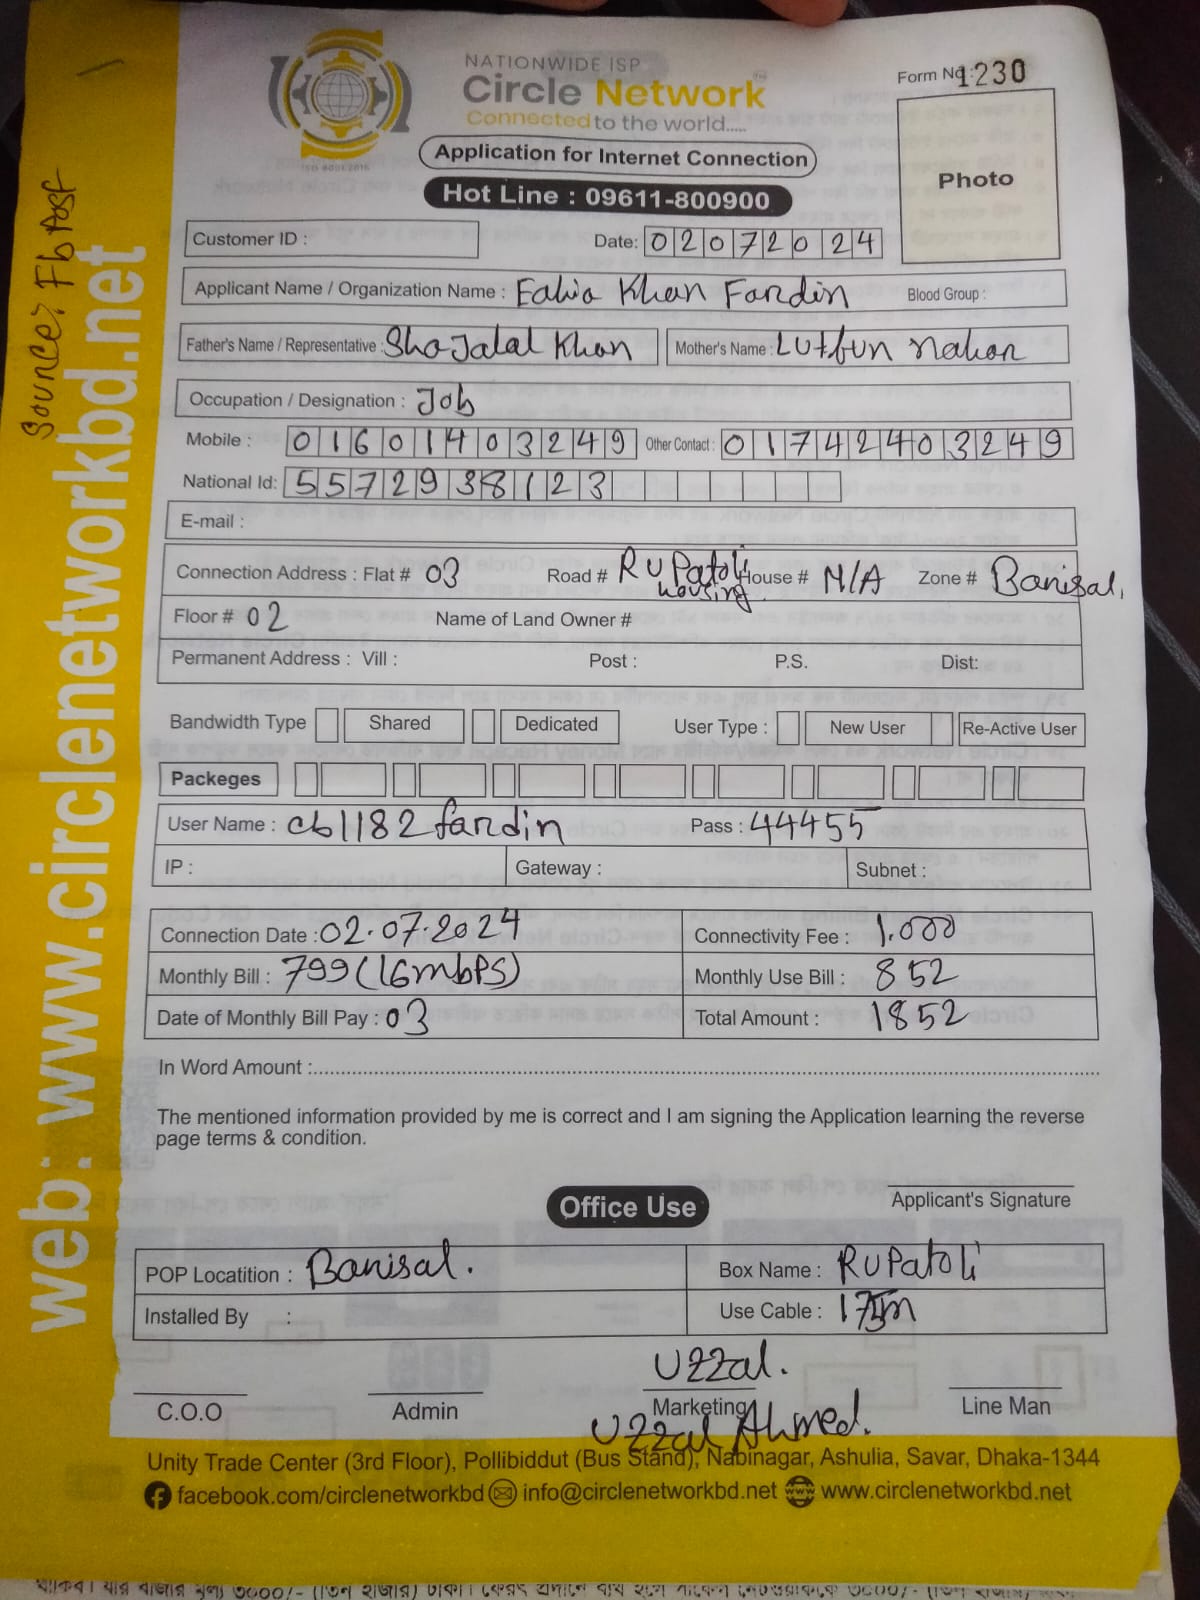 NATIONWIDE ISP
Circle Network™
Connected to the world.....
ISO 9001:2015
Form No: 1230
Photo
Application for Internet Connection
Hot Line : 09611-800900
Customer ID :
Date: 02072024
Applicant Name / Organization Name : Eahia Khan Fardin Blood Group :
Father's Name / Representative : Sha Jalal Khan Mother's Name : Lutfun nahar
Occupation / Designation : Job
Mobile : 01601403249 Other Contact : 01742403249
National Id: 5572938123
E-mail :
Connection Address : Flat # 03 Road # RuPatoli housing. House # N/A Zone # Barisal,
Floor # 02 Name of Land Owner #
Permanent Address : Vill : Post : P.S. Dist:
Bandwidth Type Shared Dedicated User Type : New User Re-Active User
Packeges
User Name : cb1182fardin Pass : 44455
IP : Gateway : Subnet :
Connection Date : 02.07.2024 Connectivity Fee : 1,000
Monthly Bill : 799 (16mbPS) Monthly Use Bill : 852
Date of Monthly Bill Pay : 03 Total Amount : 1852
In Word Amount :
The mentioned information provided by me is correct and I am signing the Application learning the reverse
page terms & condition.
Applicant's Signature
Office Use
POP Locatition : Barisal. Box Name : RuPatoli
Installed By : Use Cable : 175m
Uzzal.
C.O.O Admin Marketing Line Man
Uzzal Ahmed.
Unity Trade Center (3rd Floor), Pollibiddut (Bus Stand), Nabinagar, Ashulia, Savar, Dhaka-1344
facebook.com/circlenetworkbd info@circlenetworkbd.net www.circlenetworkbd.net
web: www.circlenetworkbd.net
Source: Fb Post